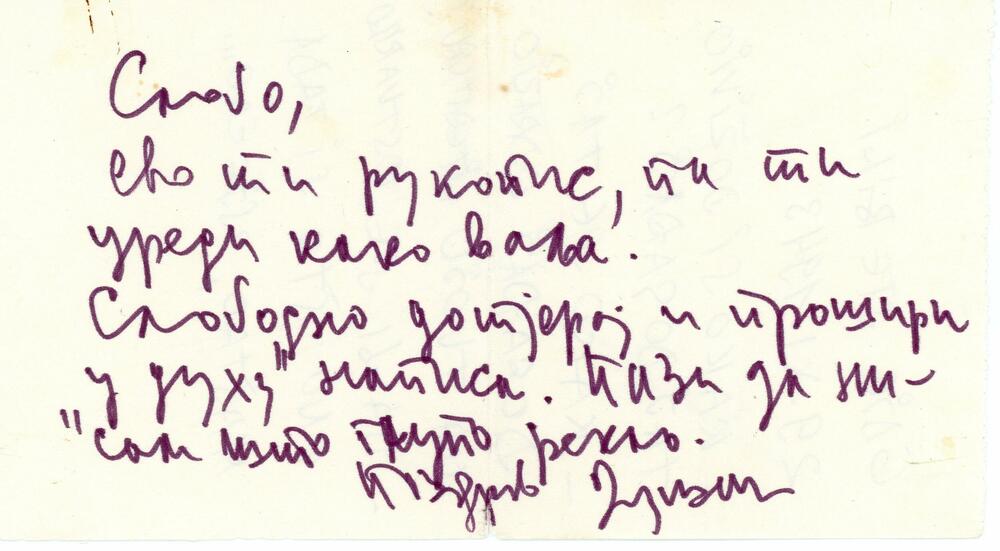 Слободо,
ево ти рукопис, па ти
уреди како ваља.
Слободно дотјерај и прошири
у духу" написа. Пази да ни-
"сам што глупо рекао.
Поздрав